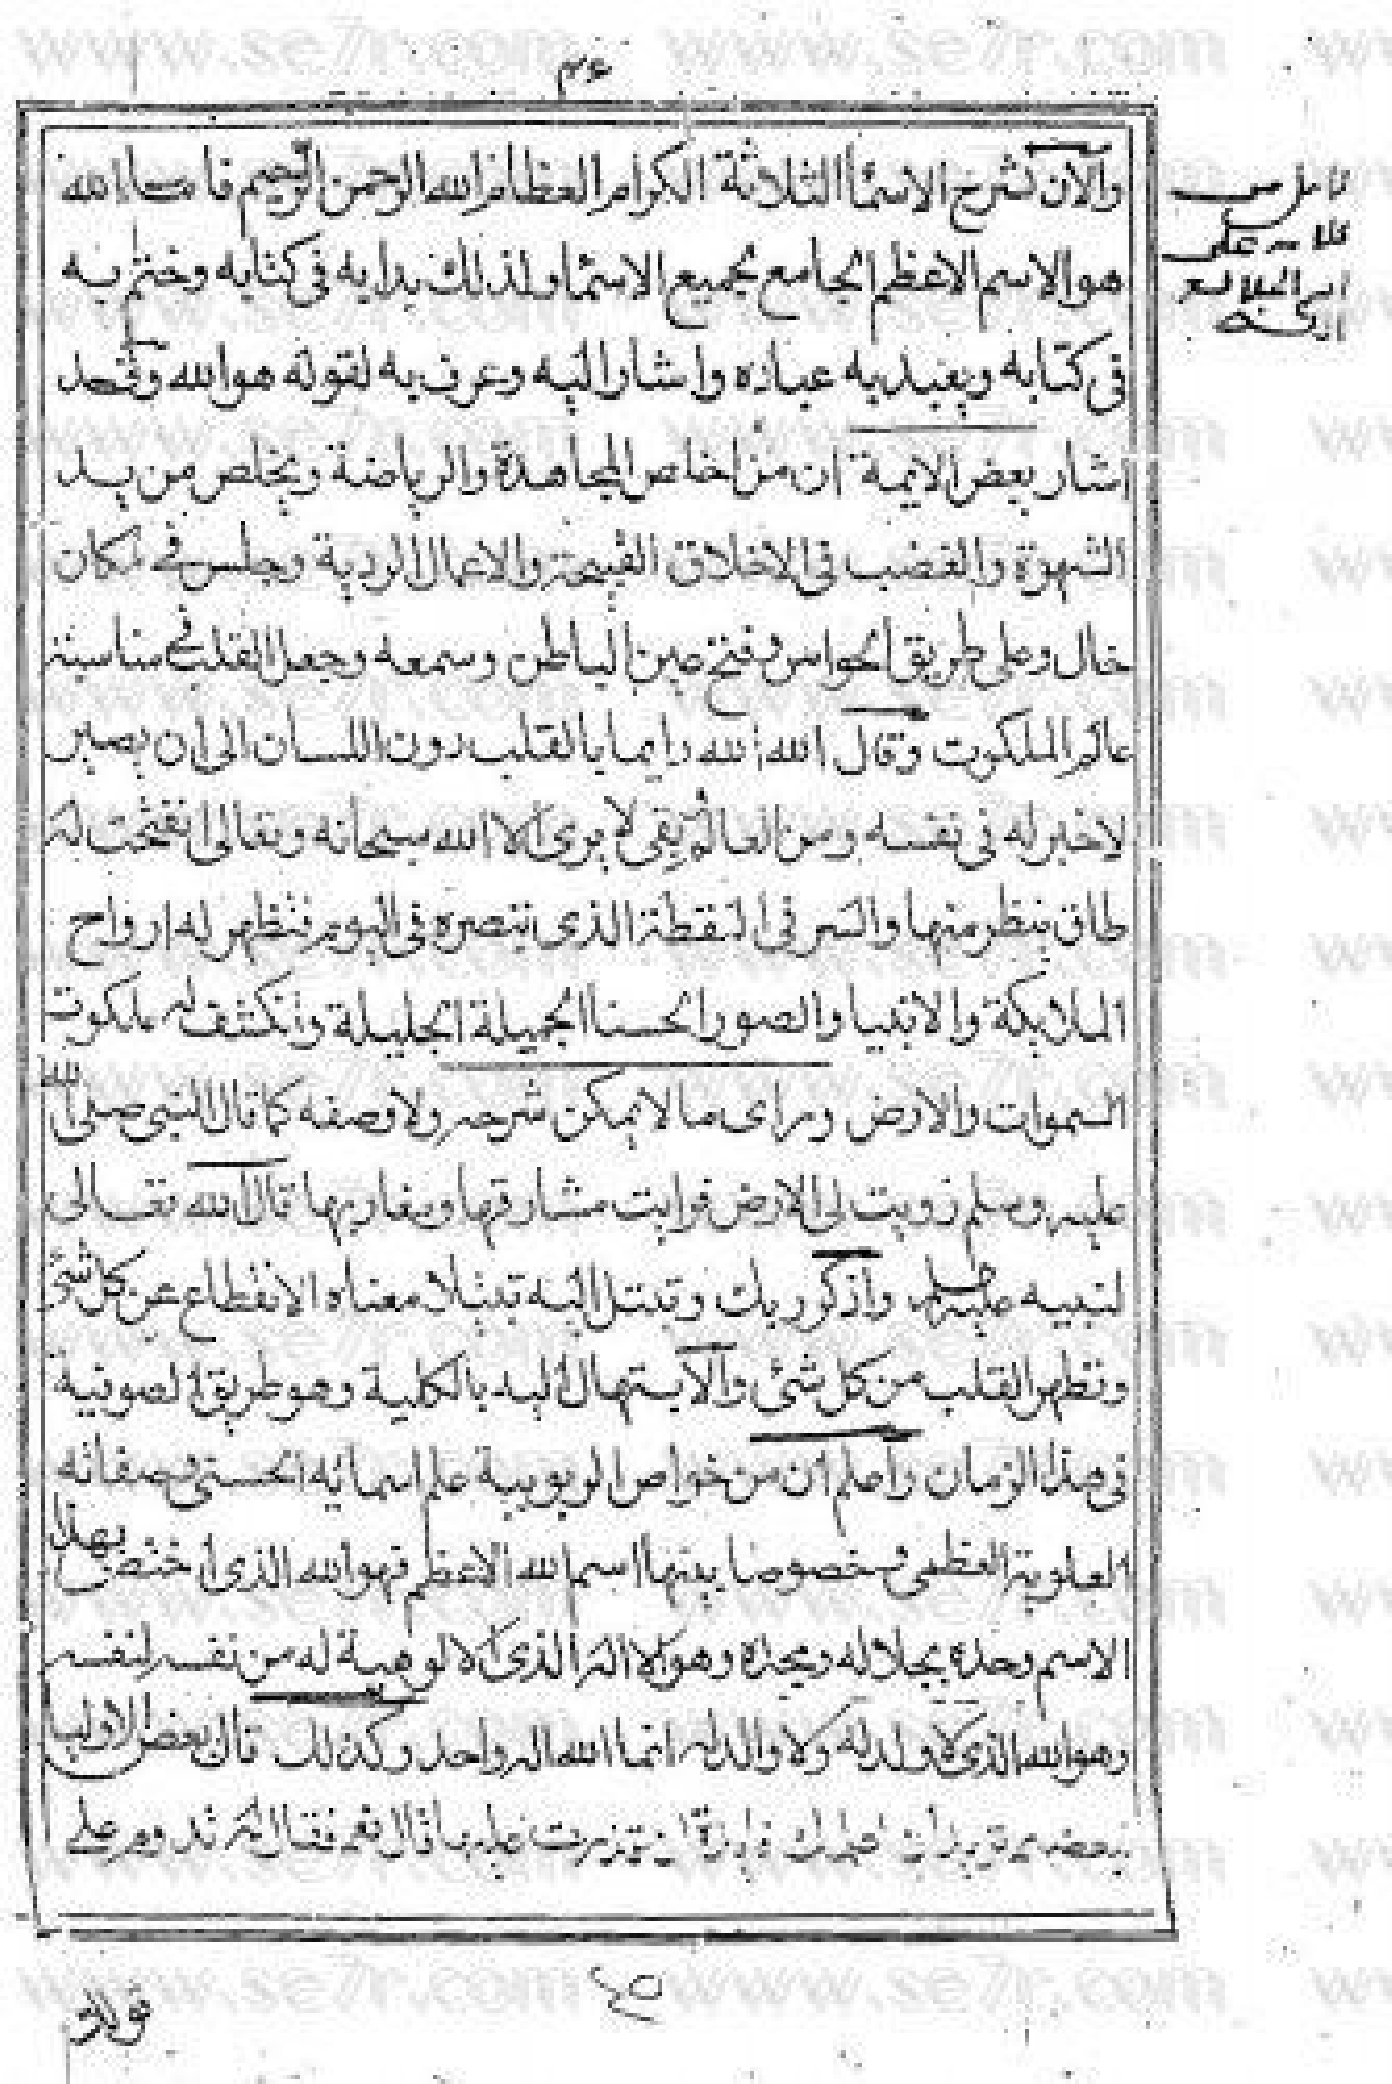 www.se7r.com www.se7r.com
٣٤
والآن نشرح الاسمأ الثلاثة الكرام العظام الله الرحمن الرحيم فاما الله
هو الاسم الاعظم الجامع بجميع الاسما ولذلك بدا به فى كتابه وختم به
فى كتابه وبعبد به عباده واشار اليه وعرف به لقوله هو الله وقد
اشار بعض الايمة ان من اخلص المجاهدة والرياضة وتخلص من يد
الشهوة والغضب فى الاخلاق القبيحة والاعمال الردية وجلس فى مكان
خال وعلى طريق الحواس وفتح عين الباطن وسمعه وجعل القلب فى مناسبة
عالم الملكوت وقال الله الله دايما بالقلب دون اللسان الى ان يصير
لاخبر له فى نفسه ومن العالم يبقى لا يرى الا الله سبحانه وتعالى انفتحت له
طاق ينظر منها والسر فى النقطة الذى تبصره فى اليوم فتظهر له ارواح
الملايكة والانبيا والصور الحسنا الجميلة الجليلة وانكشف له ملكوت
السموات والارض وراى ما لا يمكن شرحه ولا وصفه كما قال النبى صلى الله
عليه وسلم زويت لى الارض فرايت مشارقها ومغاربها قال الله تعالى
لنبيه عليه السلم واذكر ربك وتبتل اليه تبتيلا معناه الانقطاع عن كل شئ
وتطهر القلب من كل شئ والابتهال اليه بالكلية وهو طريق الصوفية
فى هذا الزمان واعلم ان من خواص الربوبية علم اسمائه الحسنى وصفاته
العلوية العظمى وخصوصا بينها اسم الله الاعظم فهو الله الذى اختص بهذا
الاسم وحده بجلاله ومجده وهو لا اله الذى الا لوهية له من نفسه لنفسه
وهو الله الذى لا ولد له ولا والد له انما الله اله واحد وكذلك قال بعض الاوليا
قال نعم فقال
٤٥